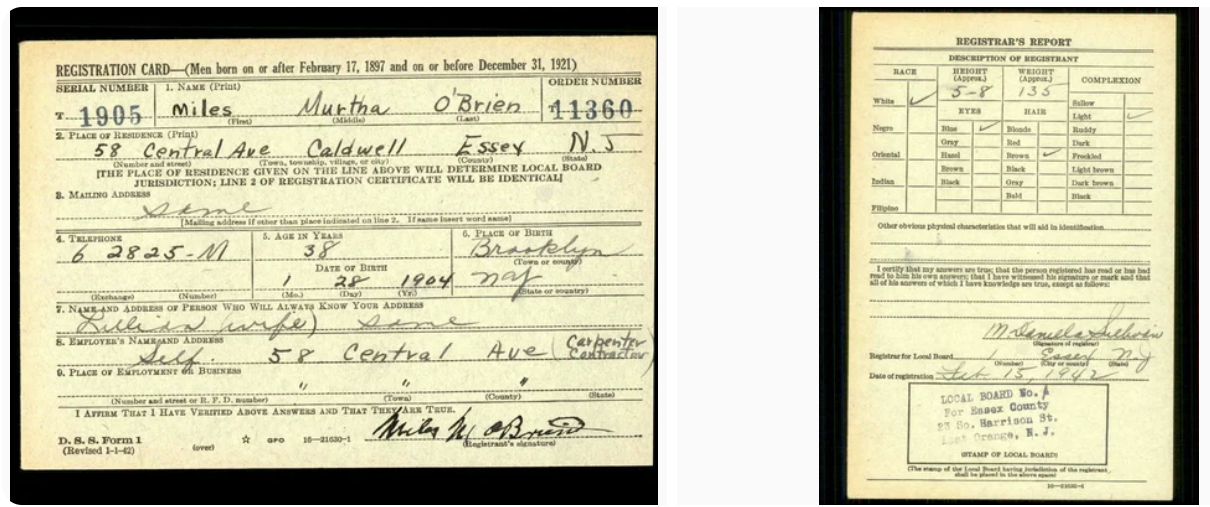 REGISTRATION CARD—(Men born on or after February 17, 1897 and on or before December 31, 1921)
SERIAL NUMBER
1. NAME (Print)
ORDER NUMBER
T 1905
Miles Murtha O'Brien
T 11360
(First) (Middle) (Last)
2. PLACE OF RESIDENCE (Print)
58 Central Ave Caldwell Essex N.J
(Number and street) (Town, township, village, or city) (County) (State)
[THE PLACE OF RESIDENCE GIVEN ON THE LINE ABOVE WILL DETERMINE LOCAL BOARD
JURISDICTION; LINE 2 OF REGISTRATION CERTIFICATE WILL BE IDENTICAL]
3. MAILING ADDRESS
same
[Mailing address if other than place indicated on line 2. If same insert word same]
4. TELEPHONE
5. AGE IN YEARS
6. PLACE OF BIRTH
6 2825-M
38
Brooklyn
(Town or county)
DATE OF BIRTH
1 28 1904
(Exchange) (Number)
(Mo.) (Day) (Yr.)
(State or country)
7. NAME AND ADDRESS OF PERSON WHO WILL ALWAYS KNOW YOUR ADDRESS
Lillian (wife) same
8. EMPLOYER'S NAME AND ADDRESS
Self. 58 Central Ave (Carpenter
Contractor)
9. PLACE OF EMPLOYMENT OR BUSINESS
" " "
(Number and street or R. F. D. number) (Town) (County) (State)
I AFFIRM THAT I HAVE VERIFIED ABOVE ANSWERS AND THAT THEY ARE TRUE.
Miles M. O'Brien
D. S. S. Form 1
(Revised 1-1-42)
(over)
☆ GPO 16—21630-1
(Registrant's signature)
REGISTRAR'S REPORT
DESCRIPTION OF REGISTRANT
RACE
HEIGHT
(Approx.)
WEIGHT
(Approx.)
COMPLEXION
5-8
135
White ✓
Sallow
EYES
HAIR
Light ✓
Negro
Blue ✓
Blonde
Ruddy
Gray
Red
Dark
Oriental
Hazel
Brown ✓
Freckled
Brown
Black
Light brown
Indian
Black
Gray
Dark brown
Bald
Black
Filipino
Other obvious physical characteristics that will aid in identification
I certify that my answers are true; that the person registered has read or has had
read to him his own answers; that I have witnessed his signature or mark and that
all of his answers of which I have knowledge are true, except as follows:
(Signature of registrar)
Registrar for Local Board 1 Essex N.J
(Number) (City or county) (State)
Date of registration Feb. 15, 1942
LOCAL BOARD No. 1
For Essex County
23 So. Harrison St.
East Orange, N. J.
(STAMP OF LOCAL BOARD)
(The stamp of the Local Board having jurisdiction of the registrant
shall be placed in the above space)
16—21630-1